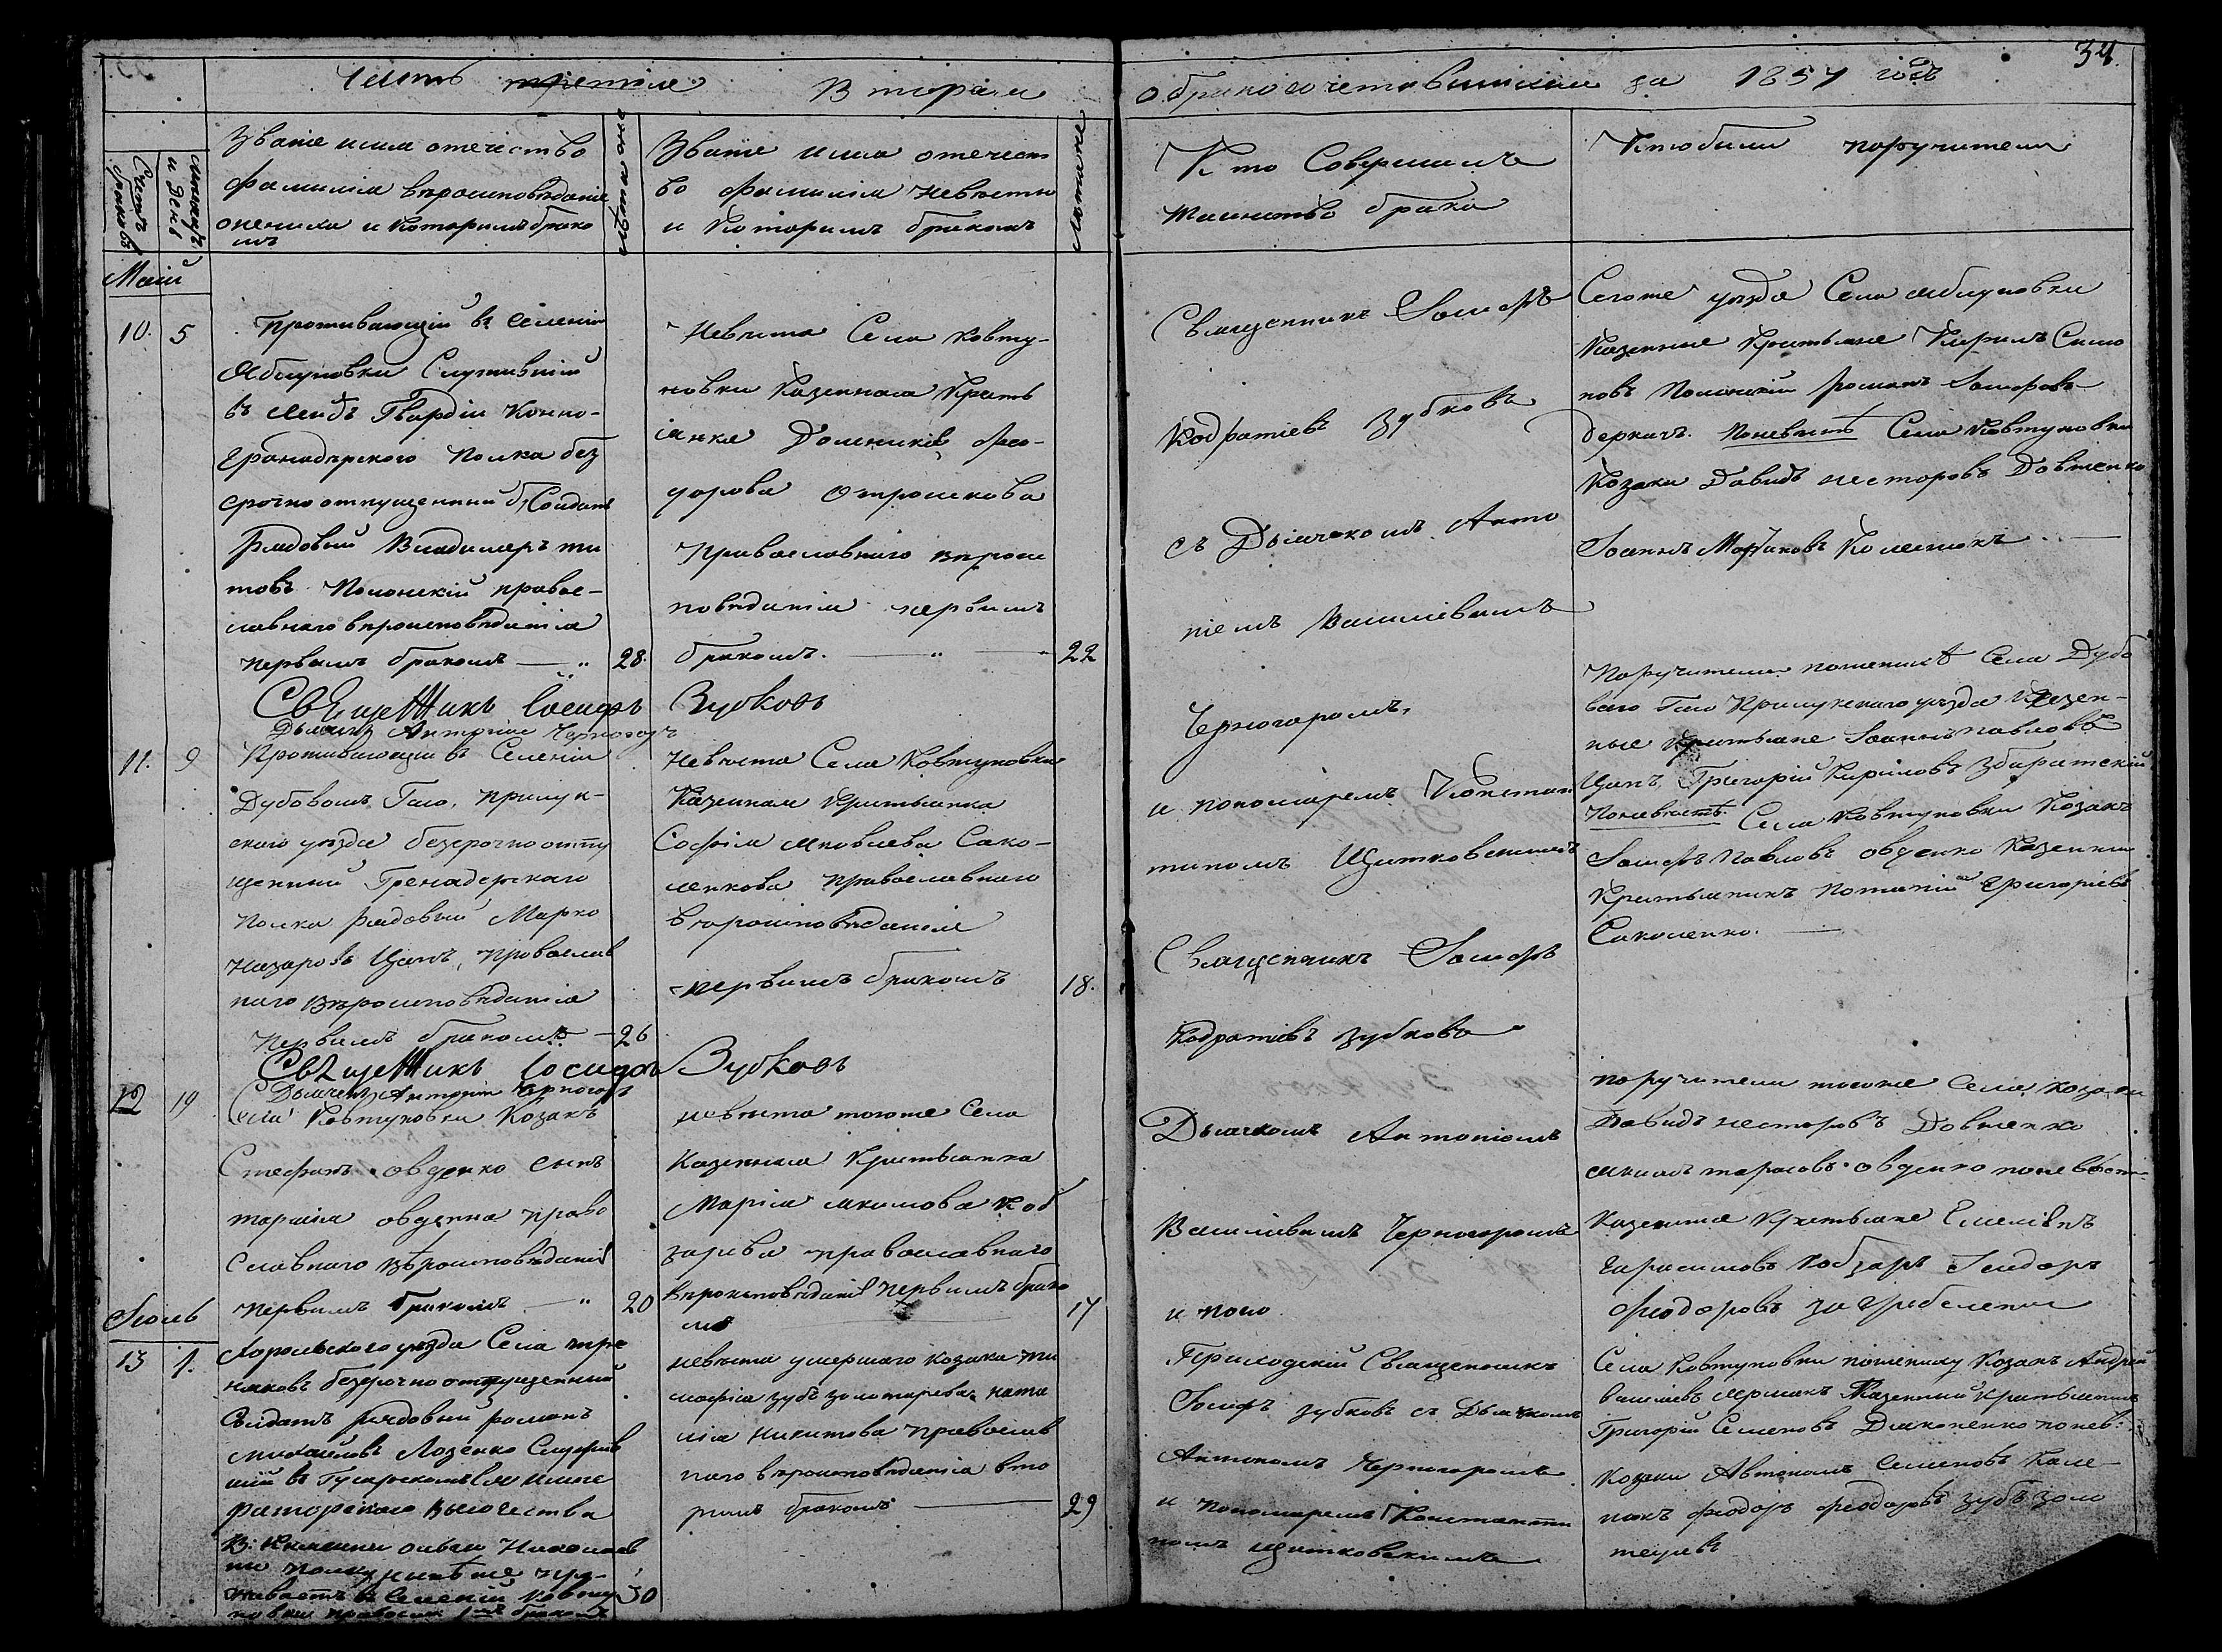 34.
Часть третіа Вторая
о бракосочетавшихся за 1857 годъ
Счетъ браковъ
мѣсяцъ и день
Званіе имя отечество
фамиліа вѣроисповѣданіе
жениха и которимъ брако
мъ
лѣта его
Званіе имя отечест
во фамиліа невѣсты
и которимъ бракомъ
лѣта ее
Кто Совершилъ
таинство брака
Кто были поручители
Маій
10. 5
Проживающій въ селеніи
Яблуновки Служившій
въ лейбъ Гвардіи Конно-
Гранадѣрского полка без
срочно отпущенний Солдатъ
Рядовый Владимеръ ти
товъ Полонскій правос-
лавнаго вѣроисповѣданіа
первимъ бракомъ — 28.
Невѣста Села Ковту-
новки Казенная Крять
янка Домникіа фео-
дорова Отрошкова
Православнаго вѣрои
повѣданіа первимъ
бракомъ. — 22
Священникъ Іосифъ
Кодратіевъ Зубковъ
съ Дьячкомъ Анто
ніемъ Василіевимъ
Черногоромъ,
и пономаремъ Констан
тиномъ Щитковскимъ
Сегоже уѣзда Села Яблуновки
Казенние Крятьяне Кирилъ Симо
новъ Полонскій романъ Іосифовъ
Деркачъ. Поневѣстѣ Села Ковтуновки
Козаки Давидъ несторовъ Довженко
Іоаннъ Мартиновъ Колесникъ. —
Священникъ Іосифъ Зубковъ
Дьячекъ Антоній Черногоръ
11. 9
Проживающій въ Селеніи
Дубовомъ Гаю, прилук-
ского уѣзда безсрочно отпу
щенний Гренадерскаго
Полка рядовый Марко
Назаровъ Цапъ, православ
наго вѣроисповѣданіа
Первимъ бракомъ — 26
Невѣста Села Ковтуновки
Казенная Крятьянка
Софіа Яковлева Сако-
ленкова православнаго
вѣроисповѣданіа
первимъ бракомъ 18.
Священникъ Іосифъ
Кодратіевъ Зубковъ
Поручители по женихѣ Села Дубо
ваго Гаю Прилукскаго уѣзда Казен-
ные крятьяне Іоаннъ павловъ
Цапъ, Григорій Кириловъ Збаратскій
Поневѣстѣ Села Ковтуновки Козакъ
Іосифъ Павловъ овденко Казенний
Крятьянинъ Потапій Григоріевъ
Саколенко. —
Священникъ Іосифъ Зубковъ
Дьячекъ Антоній Черногоръ
12 19
Села Ковтуновки Козакъ
Стефанъ овденко сынъ
тарасіа овденка право
Славнаго вѣроисповѣданіа
первимъ бракомъ — 20
невѣста тогоже Села
Казенная Крятьянка
Маріа акимова Коб
зарева православнаго
вѣроисповѣданіа первимъ брако
мъ 17
Дьячкомъ Антоніемъ
Василіевимъ Черногоромъ
и поно
поручители тогоже Села козаки
Давидъ несторовъ Довженко
акимъ тарасовъ овденко поневѣст-
Казенные Крятьяне Емеліянъ
Гарасимовъ Кобзарь Ісидоръ
Феодоровъ загребелний
Іюль
13 1.
Хорольского уѣзда Села
безсрочно отпущенный
Солдатъ рядовый романъ
михайловъ Лозенко Служив
шій въ Гусарскомъ Ея импе
раторского высочества
В: Княжны ольги Николаев
ны полку нинѣ же про-
живаетъ въ Селеніи Ковту 30
новки православ 1мъ бракомъ
невѣста умершаго козака ти
мофіа зубъ золотарева ната
ліа никитова православ
наго вѣроисповѣданіа вто
римъ бракомъ — 29
Приходскій Священникъ
Іосифъ зубковъ съ Дьячкомъ
Антономъ Черногоромъ
и пономаремъ Константи
номъ щитковскимъ
Села Ковтуновки поженику Козакъ Андрей
василіевъ Казенний Крятьянинъ
Григорій Семеновъ Дяконенко понев:
Козаки Автономъ Семеновъ Коле-
никъ феодоръ феодоровъ зубъ золо